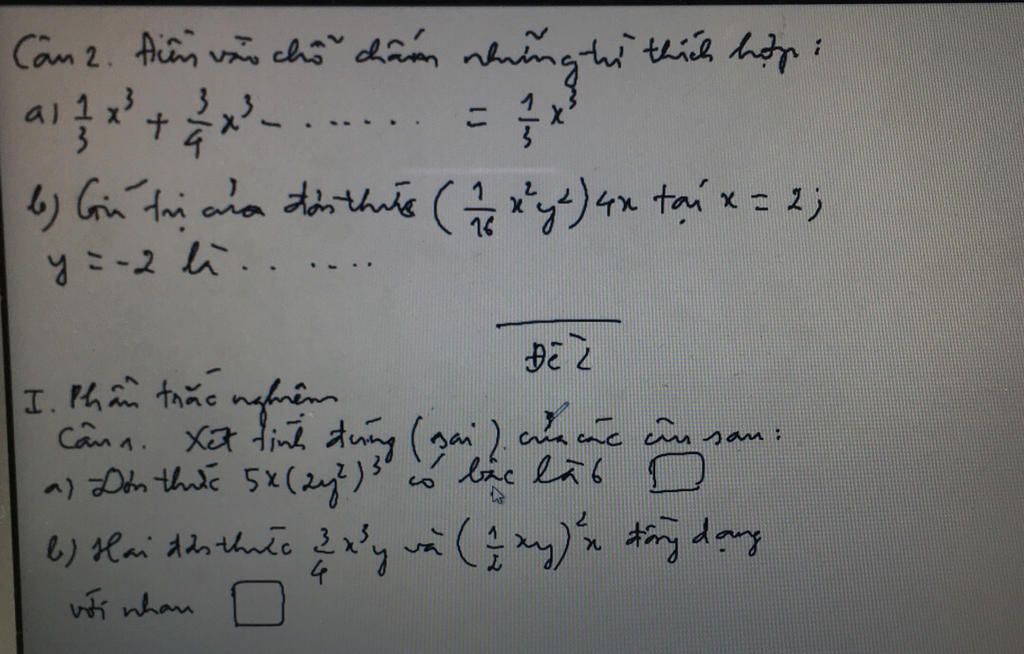 Câu 2. Điền vào chỗ chấm những từ thích hợp:
a) 1/3 x³ + 3/4 x³ - ....... = 1/3 x³
b) Giá trị của đơn thức (1/16 x²y²)4x tại x = 2;
y = -2 là .. ....
Đề 2
I. Phần trắc nghiệm
Câu 1. Xét tính đúng (sai) của các câu sau:
a) Đơn thức 5x(2y²)³ có bậc là 6
b) Hai đơn thức 3/4 x³y và (1/2 xy)²x đồng dạng
với nhau